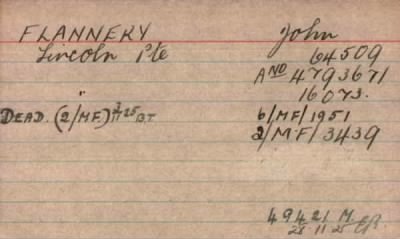 FLANNERY John
Lincoln Pte 64509
AND 4793671
16073.
"
DEAD. (2/MF) 3/11 25 BT 6/MF/1951
2/MF/3439
49421 M.
25 11 25